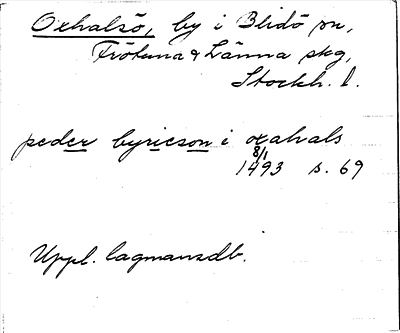 Oxhalsö, by i Blidö sn,
Frötuna & Länna skg,
Stockh. l.
peder byrieson i oxahals
8/1
1493 s. 69
Uppl. lagmansdb.